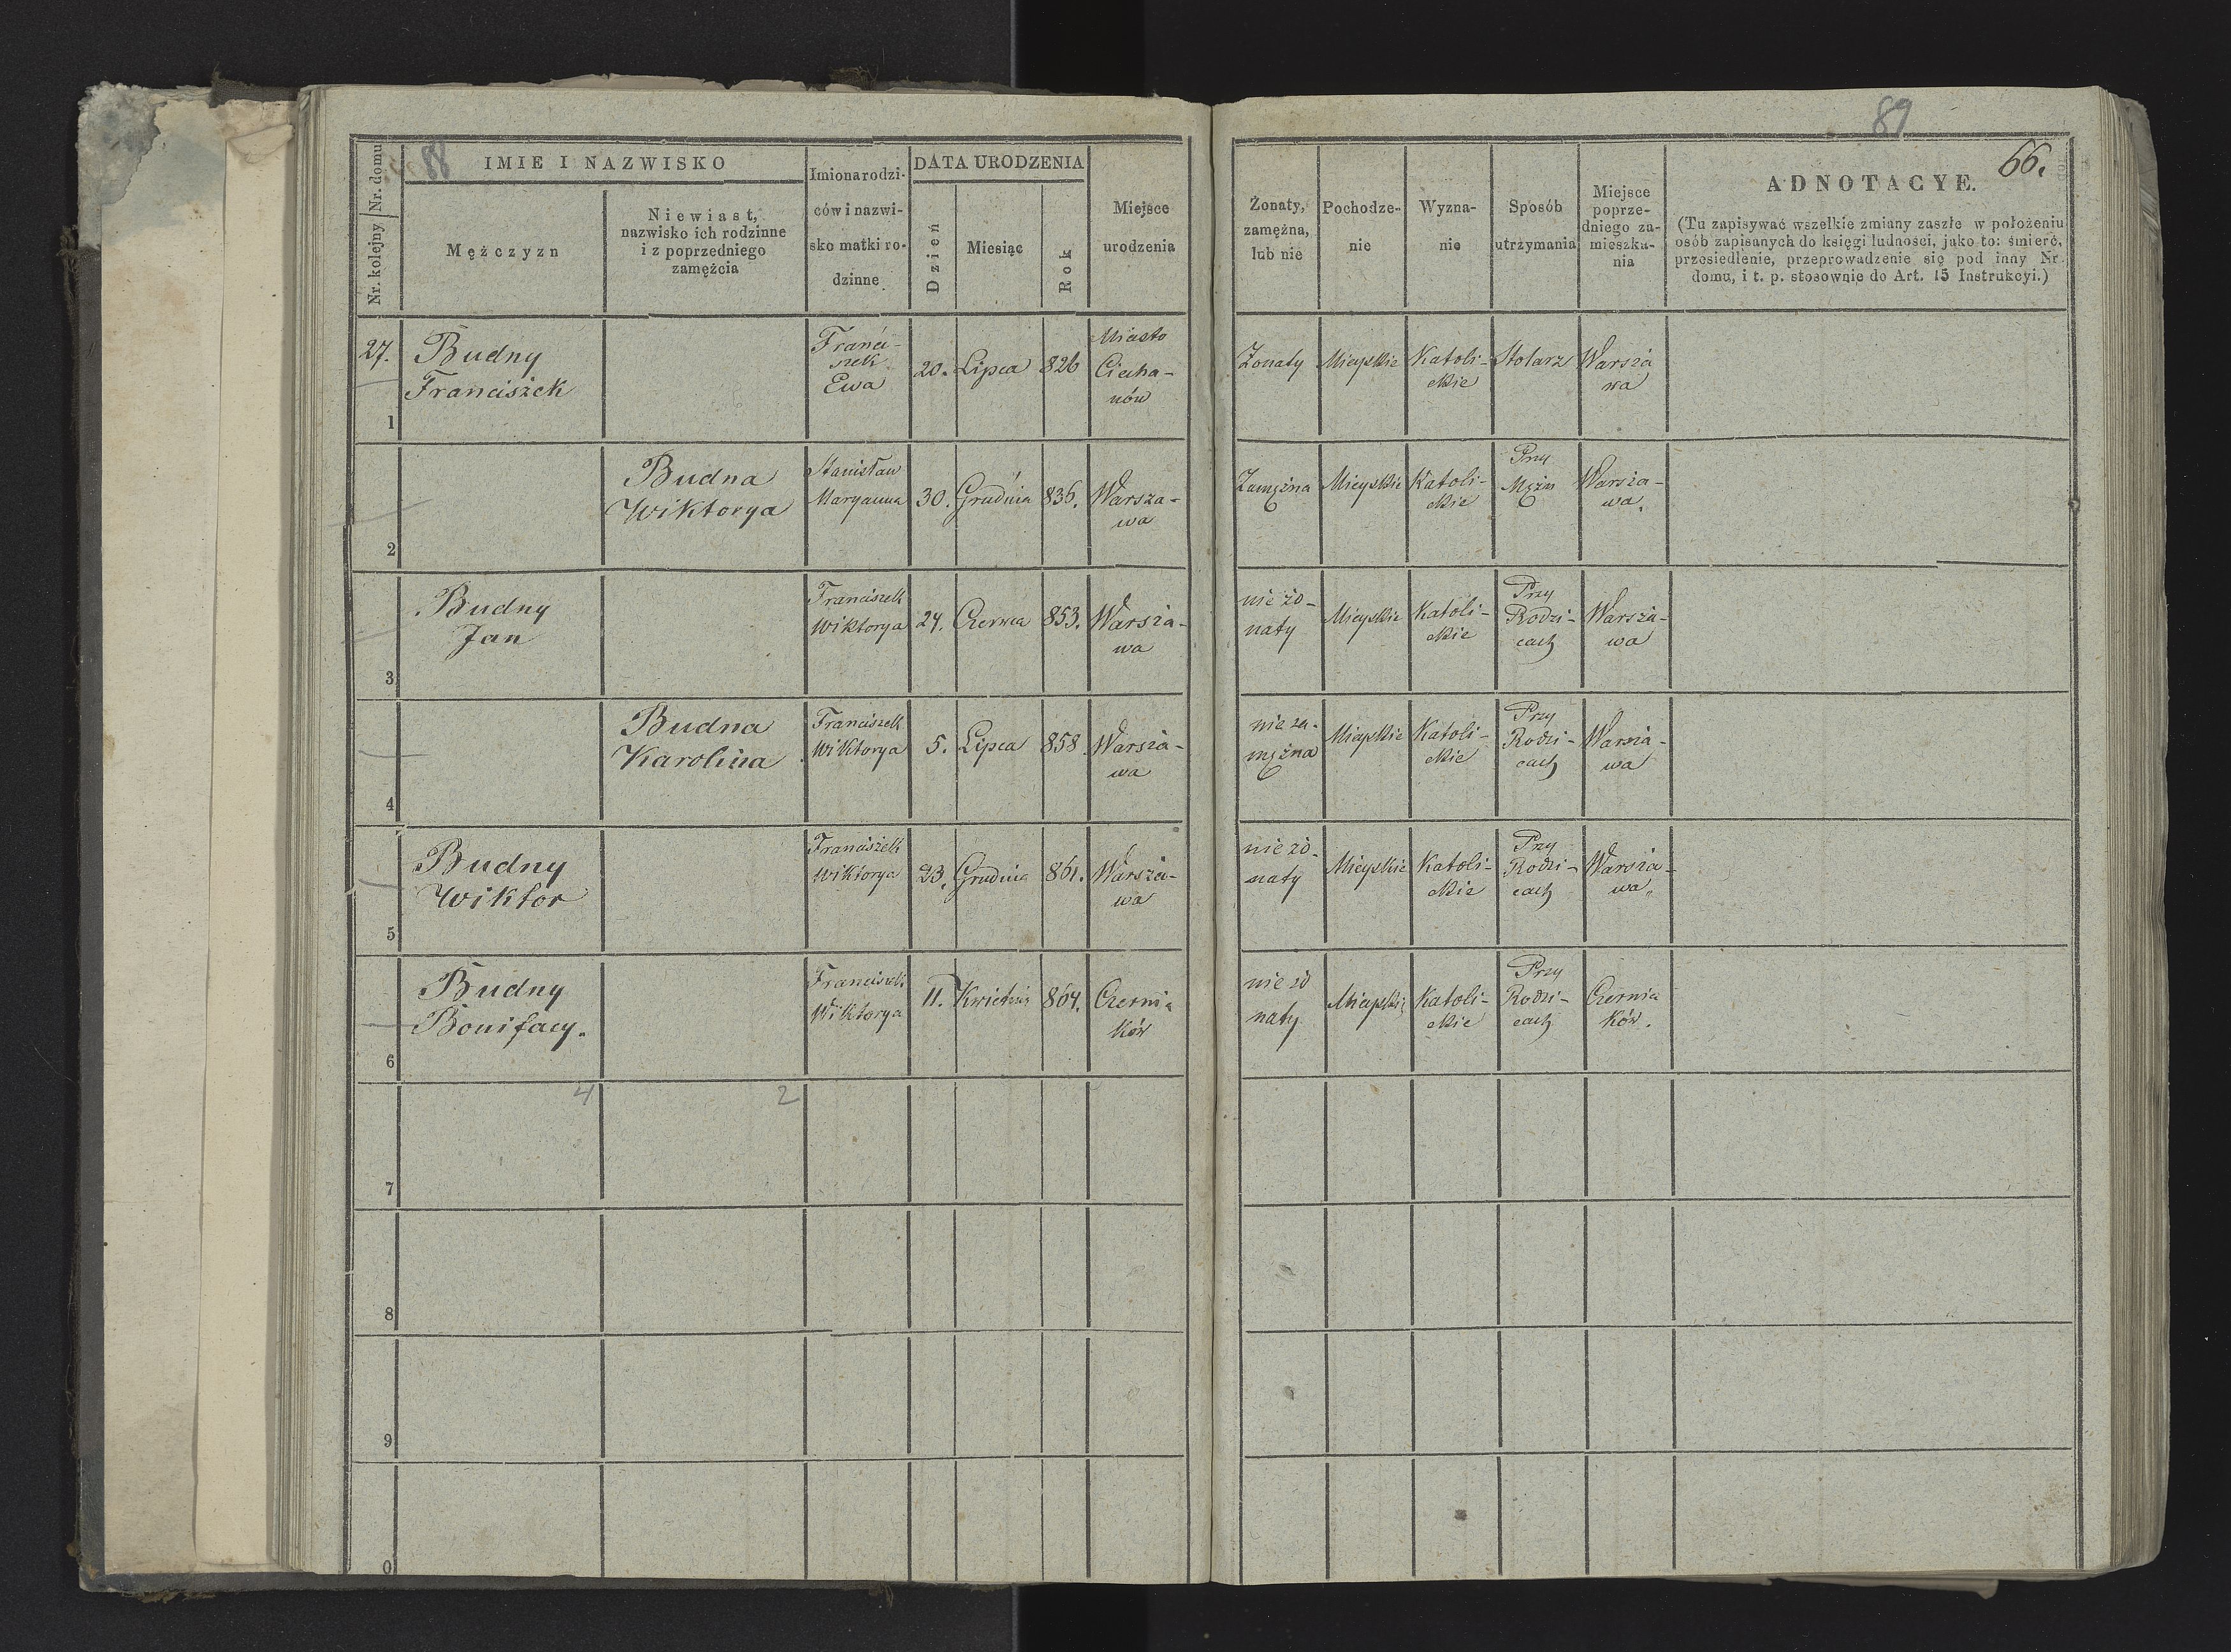 88
89
66.
Nr. kolejny Nr. domu
IMIE I NAZWISKO
Mężczyzn
Niewiast,
nazwisko ich rodzinne
i z poprzedniego
zamężcia
Imiona rodzi-
ców i nazwi-
sko matki ro-
dzinne
DATA URODZENIA
Dzień
Miesiąc
Rok
Miejsce
urodzenia
Żonaty,
zamężna,
lub nie
Pochodze-
nie
Wyzna-
nie
Sposób
utrzymania
Miejsce
poprze-
dniego za-
mieszka-
nia
ADNOTACYE.
(Tu zapisywać wszelkie zmiany zaszłe w położeniu
osób zapisanych do księgi ludności, jako to: śmierć,
przesiedlenie, przeprowadzenie się pod inny Nr.
domu, i t. p. stosownie do Art. 15 Instrukcyi.)
27.
1
Budny
Franciszek
Franci-
szek
Ewa
20. Lipca 826
Miasto
Ciecha-
nów
Żonaty
Mieyskie
Katoli-
ckie
Stolarz
Warsza
wa
2
Budna
Wiktorya
Stanisław
Maryanna
30. Grudnia 836.
Warsza-
wa
Zamężna
Mieyskie
Katoli-
ckie
Przy
Mężu
Warsza-
wa.
3
Budny
Jan
Franciszek
Wiktorya
24. Czerwca 853.
Warsza-
wa
nie żo-
naty
Mieyskie
Katoli-
ckie
Przy
Rodzi-
cach
Warsza-
wa
4
Budna
Karolina
Franciszek
Wiktorya
5. Lipca 858.
Warsza-
wa
nie za-
mężna
Mieyskie
Katoli-
ckie
Przy
Rodzi-
cach
Warsza-
wa
5
Budny
Wiktor
Franciszek
Wiktorya
23. Grudnia 861.
Warsza-
wa
nie żo-
naty
Mieyskie
Katoli-
ckie
Przy
Rodzi-
cach
Warsza-
wa
6
Budny
Bonifacy.
Franciszek
Wiktorya
11. Kwietnia 864.
Czernia
ków
nie żo
naty
Mieyskie
Katoli-
ckie
Przy
Rodzi-
cach
Czernia
ków.
4
2
7
8
9
0